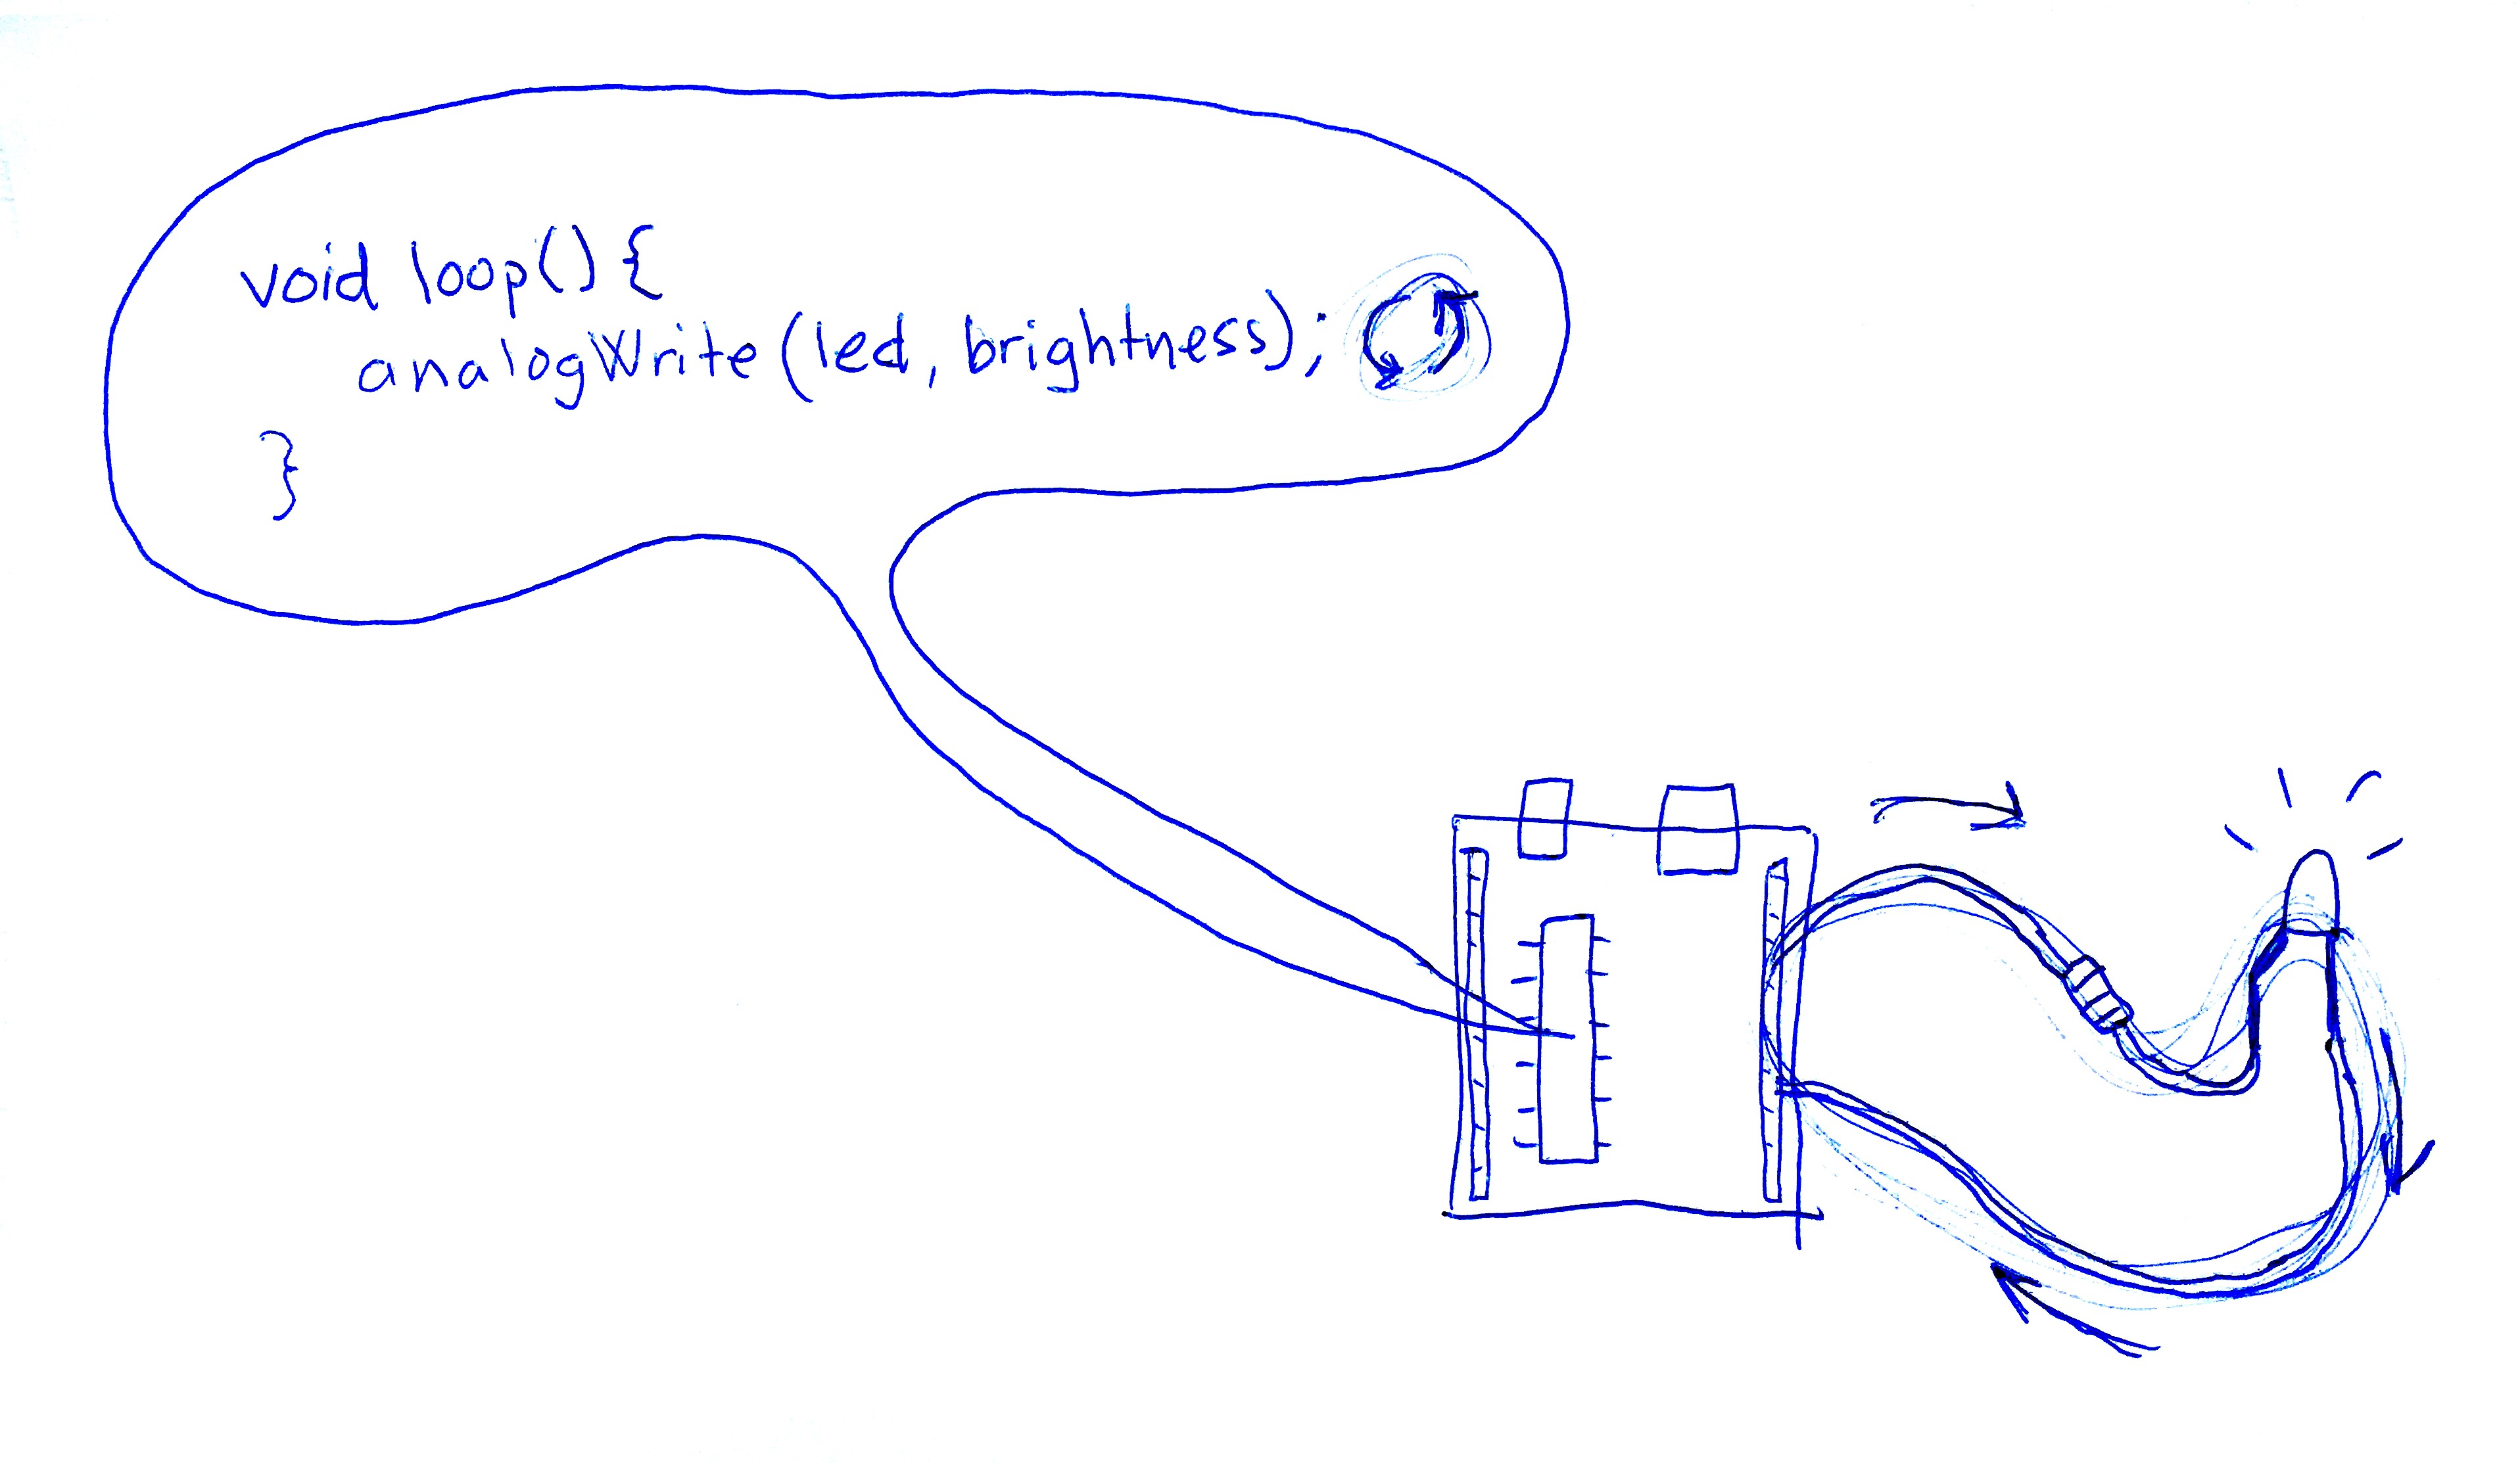 void loop() {
analogWrite (led, brightness);
}